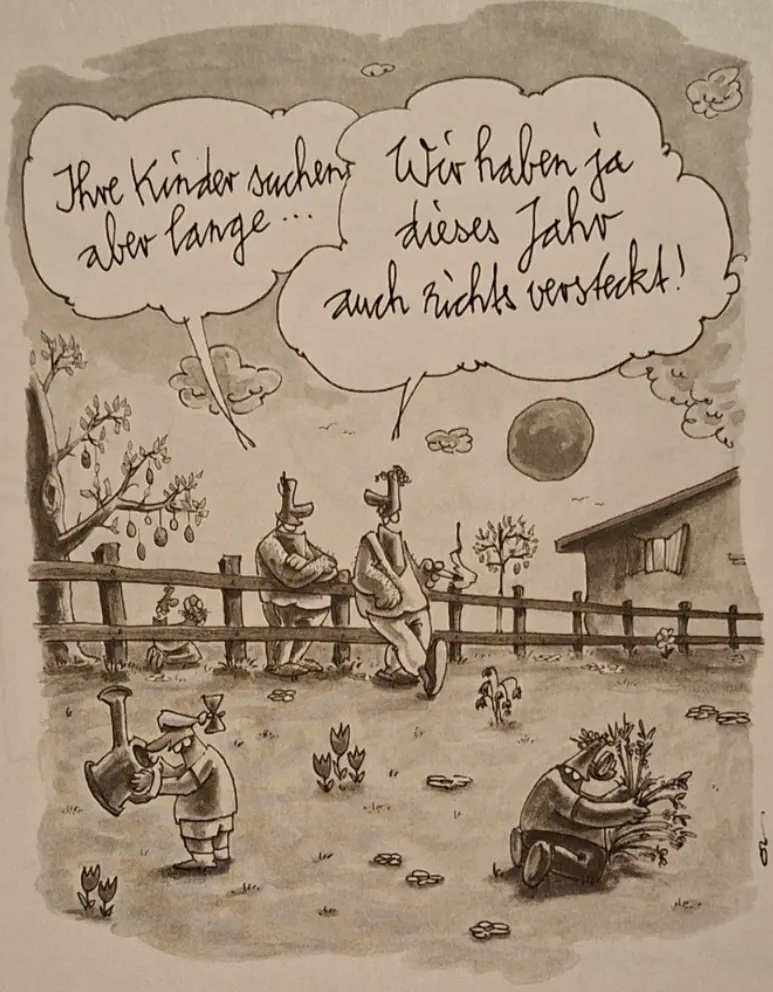 Ihre Kinder suchen
aber lange...
Wir haben ja
dieses Jahr
auch nichts versteckt!